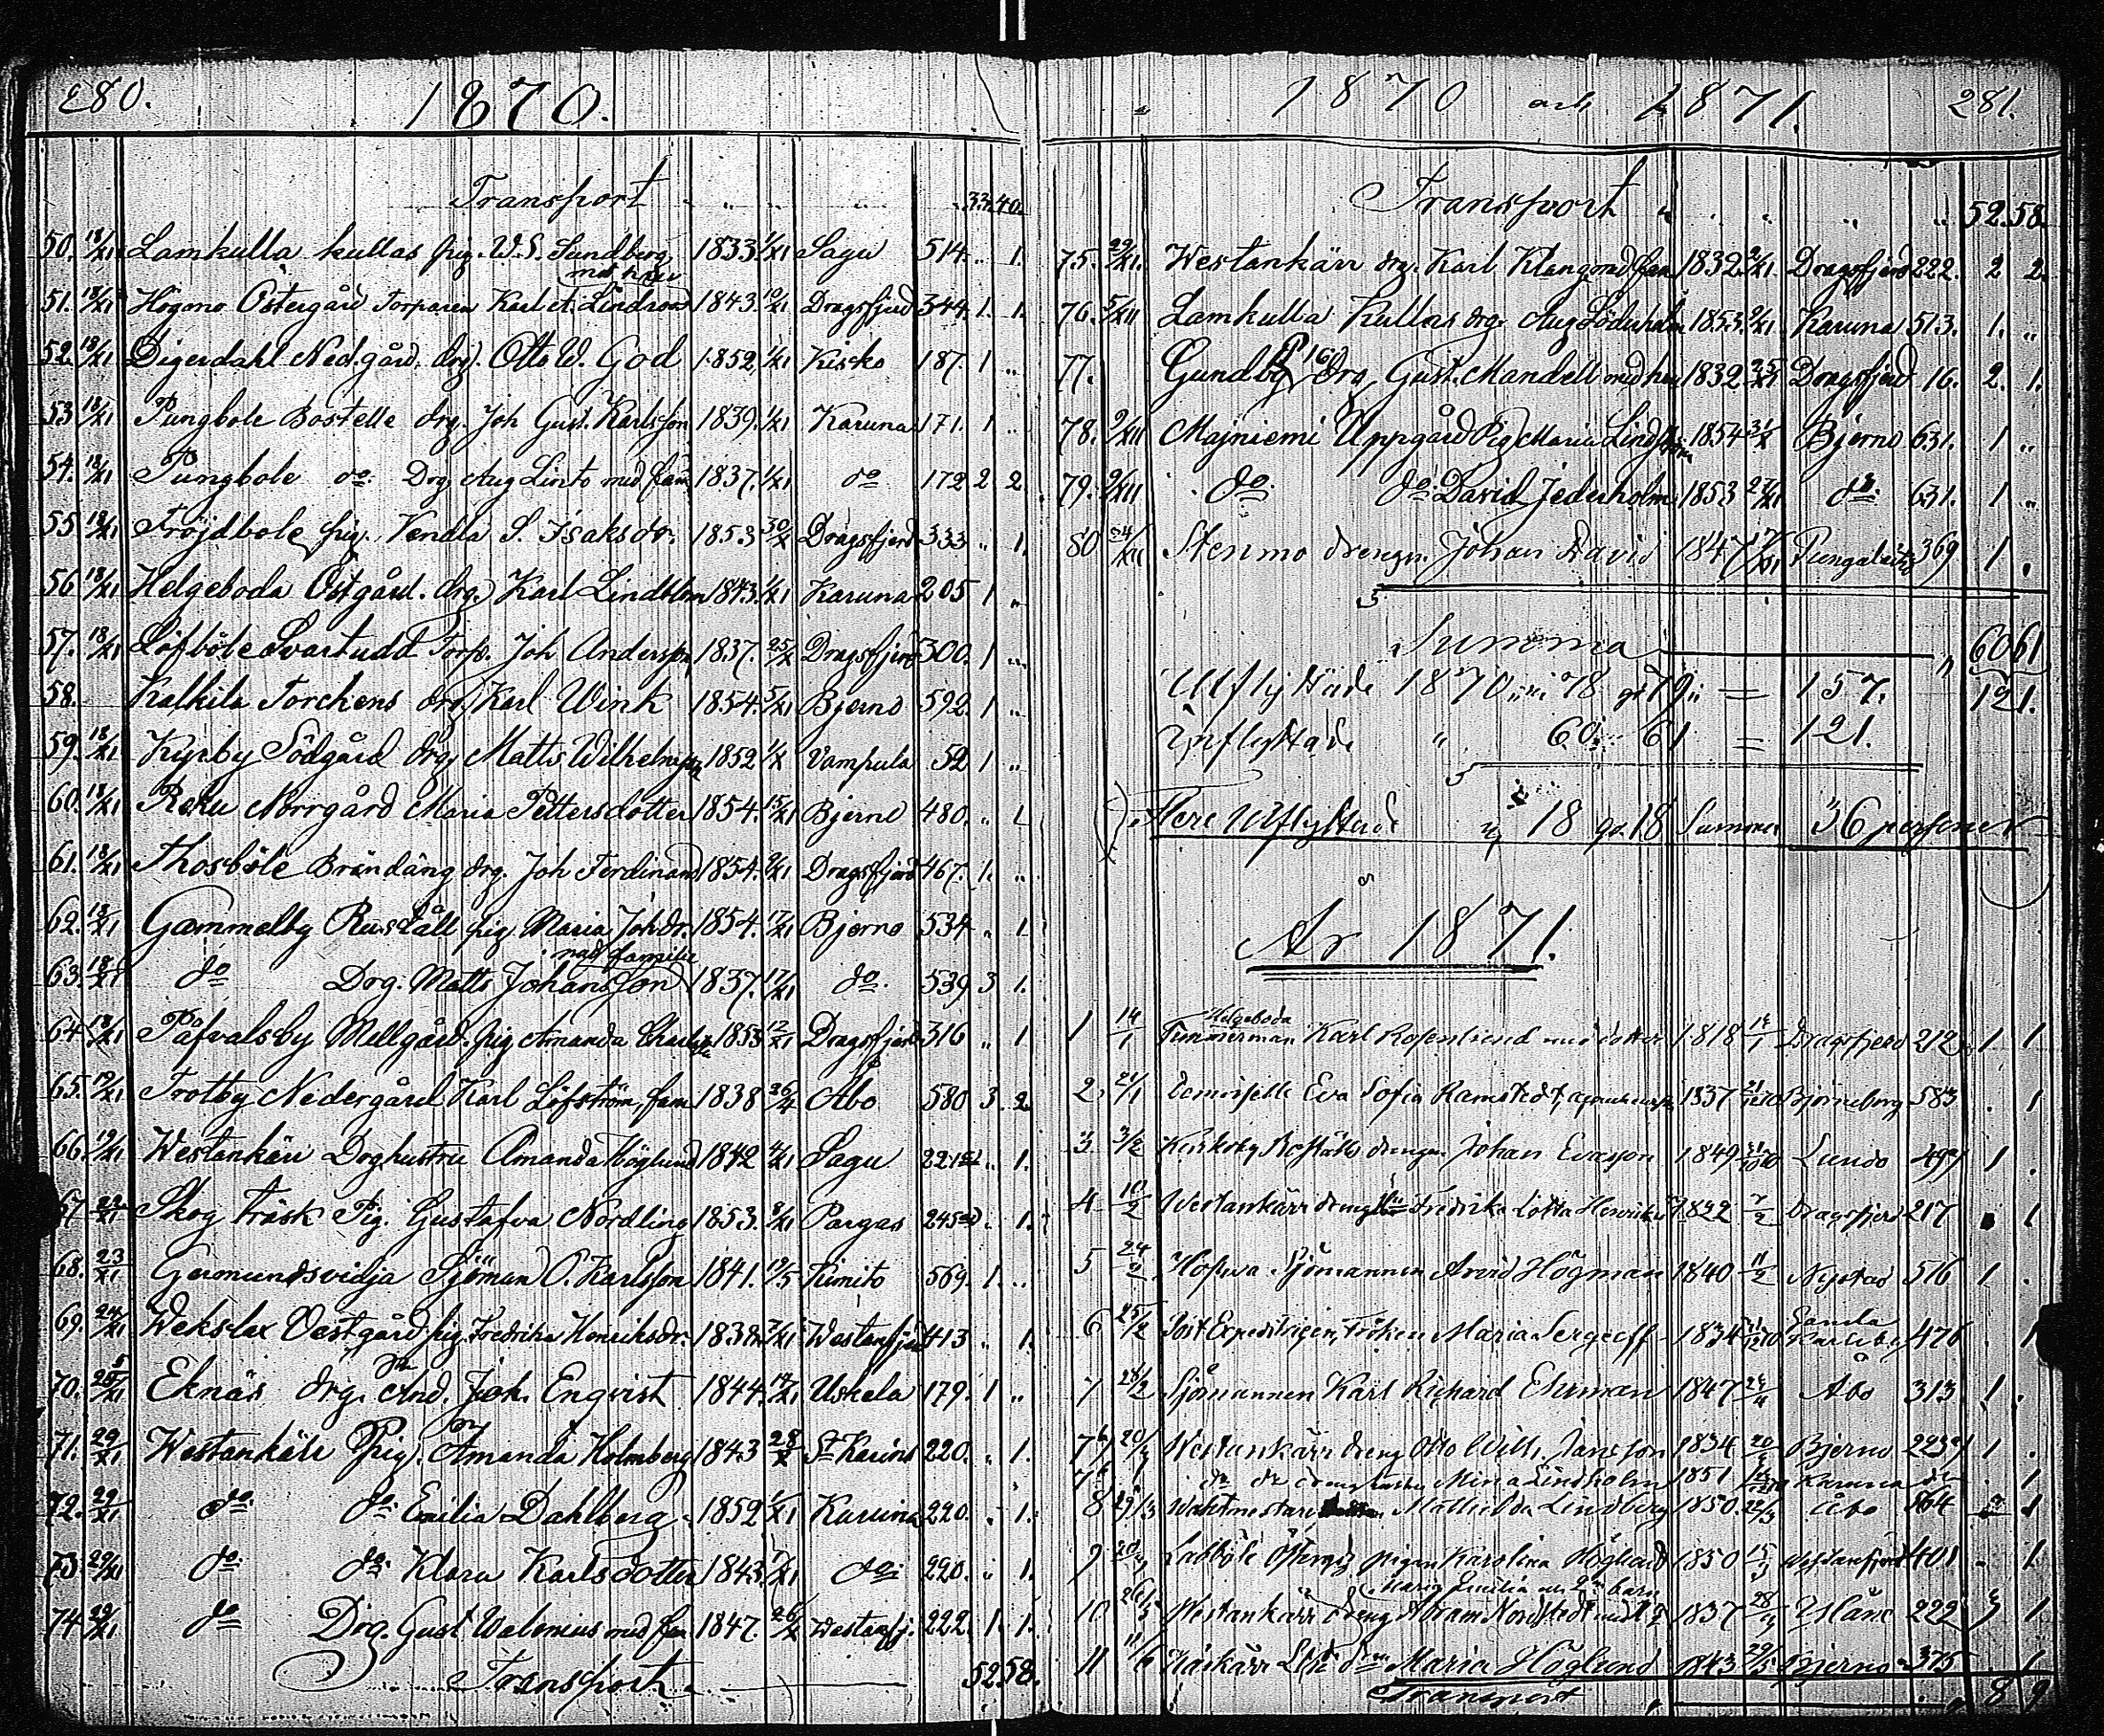 280. 1870.
Transport " " " " 33. 40.
50. 18/XI Lamkulla kullas pig. W. S. Sundberg 1833. 1/XI Sagu 514. " 1.
med hustr
51. 18/XI Högmo Östergård Torparen Karl A. Lindroos 1843. 10/XI Dragsfjerd 344. 1. 1.
52. 18/XI Digerdahl Ned.gård. drg. Otto W. God 1852. 1/XI Kisko 187. 1 "
53. 18/XI Pungbole Bostelle drg. Joh Gust. Karlsson 1839. 1/XI Karuna 171. 1 "
54. 18/XI Pungbole do. Drg Aug Linto med fam 1837. 1/XI do 172 2 2.
55 18/XI Fröjdbole pig. Vendla S. Isaksdr. 1853 30/X Dragsfjerd 333 " 1.
56 18/XI Helgeboda Östgård. drg. Karl Lindblom 1843. 1/XI Karuna 205 1 "
57. 18/XI Löfböle Svartudd Torp. Joh Andersson 1837. 25/X Dragsfjerd 300. 1 "
58. Kalkila Torchens drg Karl Wink 1854. 5/XI Bjerno 592. 1 "
59. 18/XI Kyrby Södgård drg Matts Wilhelmsson 1852 1/X Vampula 52 1 "
60. 18/XI Reku Norrgård Maria Pettersdotter 1854. 15/XI Bjerno 480. " 1
61. 18/XI Thosböle Brändäng drg. Joh Ferdinand 1854. 9/XI Dragsfjerd 467. 1. "
62. 18/XI Gammelby Rusthåll pig Maria Johdr. 1854. 17/XI Bjerno 534 " 1.
med familie
63. 18/XI do Drg. Matts Johansson 1837. 17/XI do. 539 3 1.
64. 18/XI Påfvalsby Mellgård. pig Amanda 1853 12/XI Dragsfjerd 316 " 1
65. 19/XI Trotby Nedergård Karl Löfström, fam 1838 26/X Åbo 580 3. 2.
66. 19/XI Westankärr Drghustru Amanda Höglund 1842 4/XI Sagu 221 " 1.
67. 22/XI Skog träsk Pig. Gustafva Nordling 1853. 8/XI Pargas 245 " 1.
68. 23/XI Germundsvidja Sjöman O. Karlsson 1841. 19/5 Kimito 569. 1. "
69. 24/XI Wekslax Vestgård pig Fredrika Henriksdr. 1838 7/XI Westanfjerd 413 " 1.
70. 25/XI Eknäs drg. And. Joh. Enqvist 1844. 14/XI Uskela 179. 1 "
71. 29/XI Westankärr Pig. Amanda Holmberg 1843 28/X St Karins 220. " 1.
72. 29/XI do. do. Emilia Dahlberg 1852 1/XI Karuna 220. " 1.
73. 29/XI do. do. Klara Karlsdotter 1843. 1/XI do. 220. " 1.
74 29/XI do Drg. Gust Walenius med fam. 1847. 26/X Westanfj. 222. 1. 1.
Transport 52 58.
1870 och 1871. 281.
Transport " " " " 52. 58.
75. 29/XI. Westankärr drg. Karl Klang med fam 1832. 9/XI Dragsfjerd 222. 2 2.
76. 5/XII Lamkulla Kullas drg Aug Söderholm 1853. 9/XI Karuna 513. 1. "
77. Gundby P 16 Drg Gust. Mandell med hu 1832 25/XI Dragsfjerd 16. 2. 1.
78. 9/XII Majniemi Uppgård Pig Maria Lindström 1854 31/X Bjerno 631. 1 "
79. 9/XII do do David Jederholm 1853 27/XI do 631. 1 "
80 24/XII Stenmo drengen Johan David 1847 17/XII Pungalaitio 369 1 .
Summa " 60 61
Utflyttade 1870 mk 78 qk 79 = 157. 121.
Inflyttade " 60 61 = 121.
Flere Utflyttade 18 qk 18 Summa 36 personer
År 1871.
Helgeboda
1 14/1 Timmerman Karl Rosenlund med dotter 1818 14/1 Dragsfjerd 212 1 1
2. 21/1 Demoiselle Eva Sofia Ramstedt, 1837 21/1270 Björneborg 583 . 1
3. 3/2 Rusthålls drengen Johan Evasson 1849 31/1070 Lundo 497 1 .
4 10/2 Westankärr Fredrika Lovisa Henriksd 1822 7/2 Dragsfjerd 217 . 1
5 24/2 Sjömannen Arvid Högman 1840 11/2 Nystad 516 1 .
6 25/2 Post Expeditricen, Fröken Maria Sergeeff 1834 21/1270 Gamla Karleby 476 . 1
7 28/2 Sjömannen Karl Richard Ekman 1847 24/4 Åbo 313 1 .
7 b 20/3 Westankärr dreng Otto Wilh. Jansson 1834 20/2 Bjerno 223 1 .
7 c do do dreng hustru Mina Lindholm 1851 Karuna do . 1
8 29/3 Wahtmestar Mathilda Lindberg 1850 22/3 Åbo 564 1
9 20/3 Labböle Östergd pigan Karolina Höglund 1850 15/3 Westanfjerd 401 . 1
Maria Emilia o. 2ne barn
10 26/3 Westankärr dreng Abram Nordstedt 1837 28/3 Ylåne 222 3 1
11 11/6 Kärkärr Maria Höglund 1843 29/5 Bjerno 375 1
Transport " " 8 9